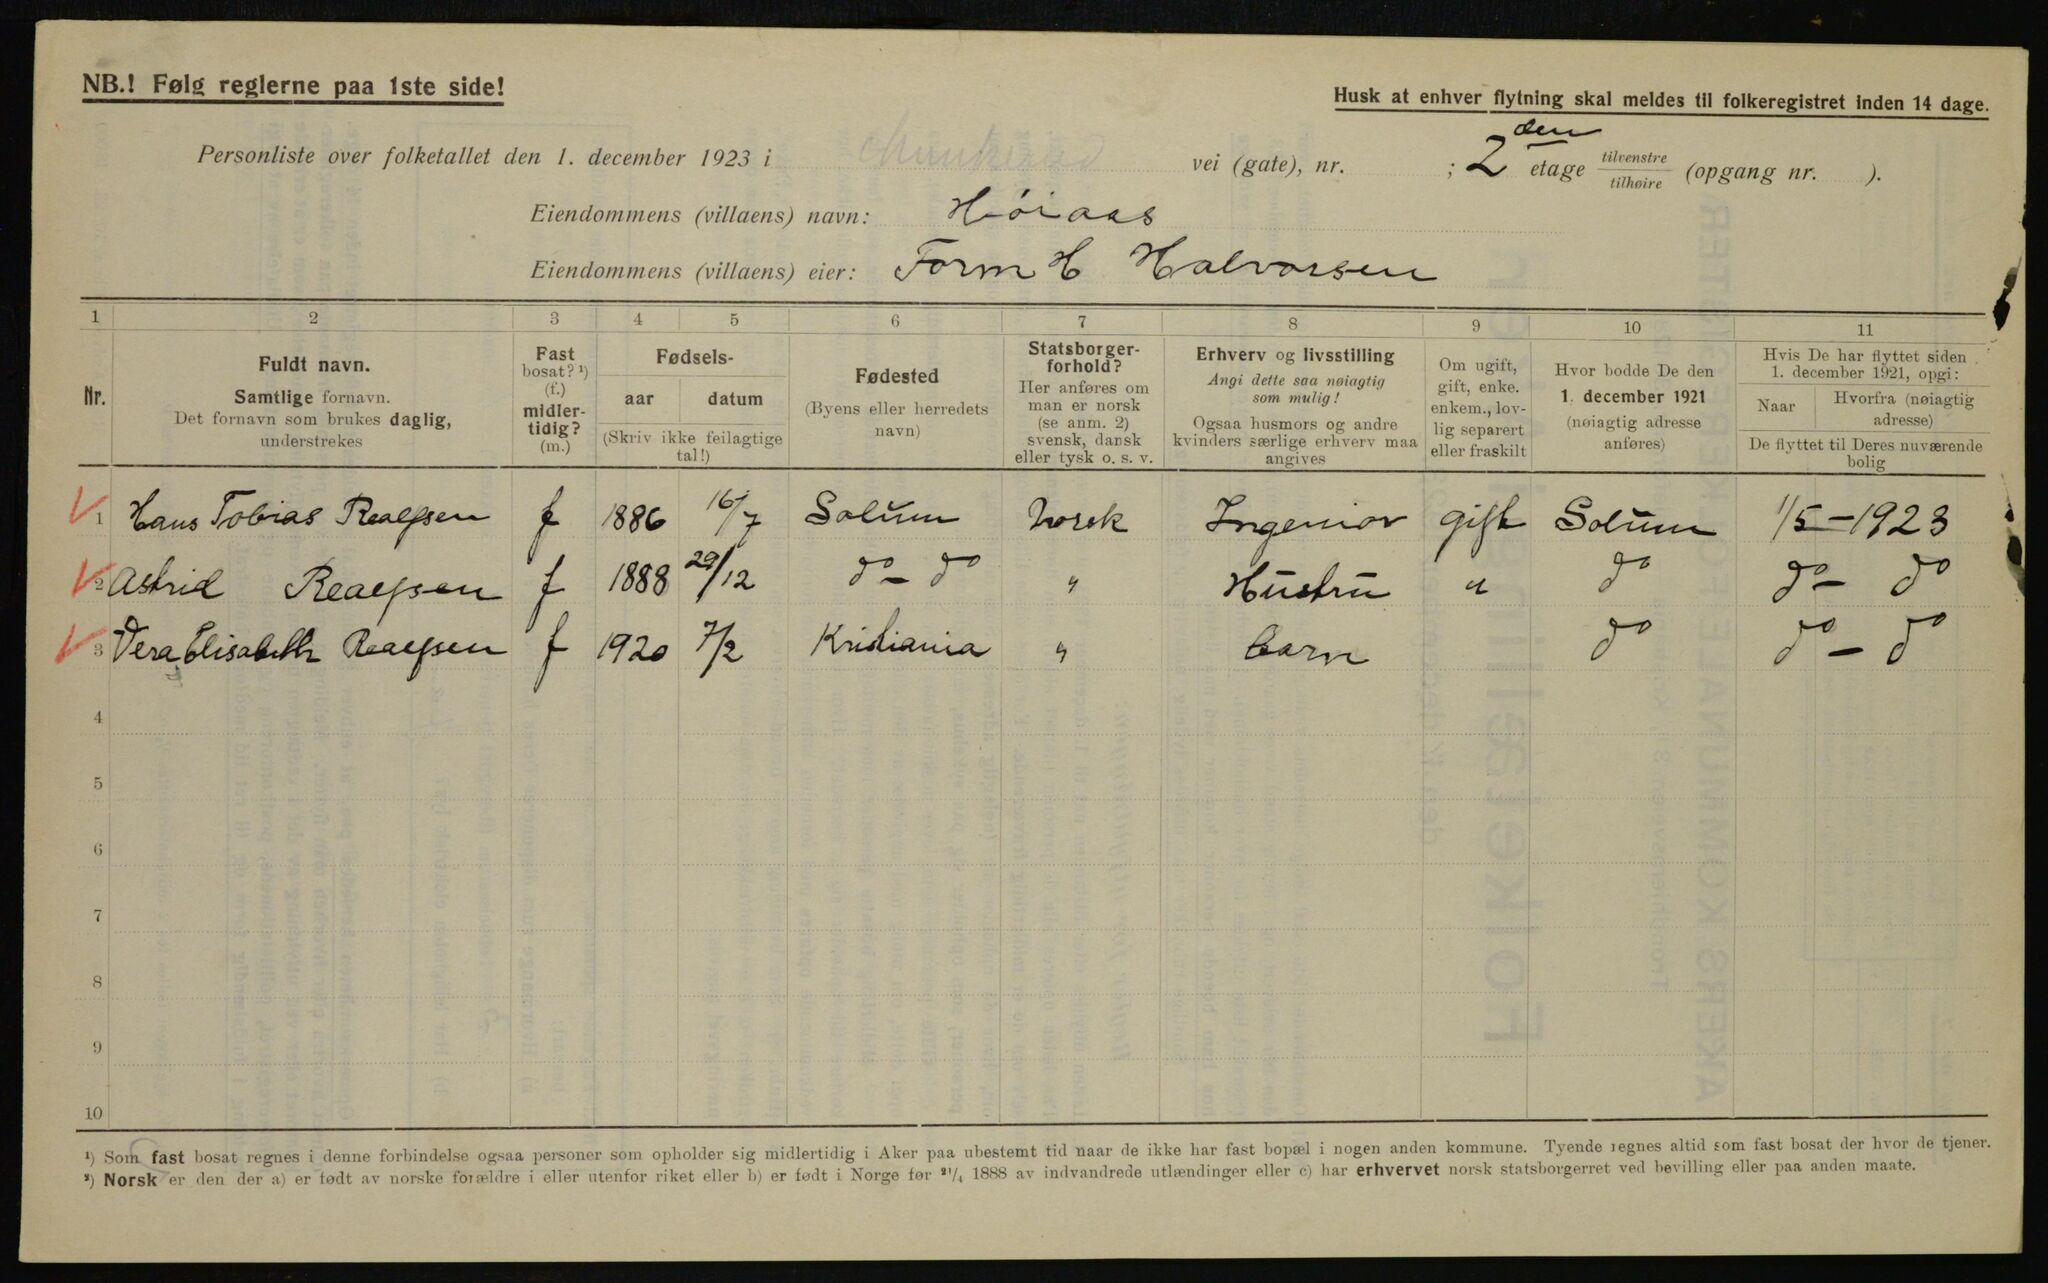 NB.! Følg reglerne paa 1ste side!
Husk at enhver flytning skal meldes til folkeregistret inden 14 dage.
Personliste over folketallet den 1. december 1923 i Munkerud vei (gate), nr. ; 2den etage tilvenstre tilhøire (opgang nr. ).
Eiendommens (villaens) navn: Høiaas
Eiendommens (villaens) eier: Form H Halvorsen
1 2 3 4 5 6 7 8 9 10 11
Nr.
Fuldt navn.
Samtlige fornavn.
Det fornavn som brukes daglig,
understrekes
Fast
bosat? ¹)
(f.)
midler-
tidig?
(m.)
Fødsels-
aar datum
(Skriv ikke feilagtige
tal!)
Fødested
(Byens eller herredets
navn)
Statsborger-
forhold?
Her anføres om
man er norsk
(se anm. 2)
svensk, dansk
eller tysk o. s. v.
Erhverv og livsstilling
Angi dette saa nøiagtig
som mulig!
Ogsaa husmors og andre
kvinders særlige erhverv maa
angives
Om ugift,
gift, enke.
enkem., lov-
lig separert
eller fraskilt
Hvor bodde De den
1. december 1921
(nøiagtig adresse
anføres)
Hvis De har flyttet siden
1. december 1921, opgi:
Naar
Hvorfra (nøiagtig
adresse)
De flyttet til Deres nuværende
bolig
1 Hans Tobias Realfsen f 1886 16/7 Solum norsk Ingeniør gift Solum 1/5-1923
2 Astrid Realfsen f 1888 29/12 do - do " Hustru " do do - do
3 Vera Elisabeth Realfsen f 1920 7/2 Kristiania " barn do do - do
4
5
6
7
8
9
10
¹) Som fast bosat regnes i denne forbindelse ogsaa personer som opholder sig midlertidig i Aker paa ubestemt tid naar de ikke har fast bopæl i nogen anden kommune. Tyende regnes altid som fast bosat der hvor de tjener.
²) Norsk er den der a) er født av norske forældre i eller utenfor riket eller b) er født i Norge før ²¹/₄ 1888 av indvandrede utlændinger eller c) har erhvervet norsk statsborgerret ved bevilling eller paa anden maate.